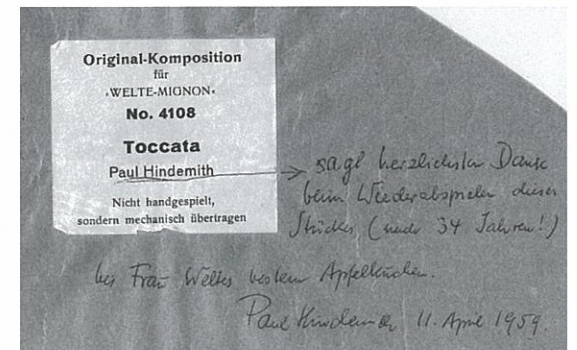 Original-Komposition
für
„WELTE-MIONON“
No. 4108
Toccata
Paul Hindemith
Nicht handgespielt,
sondern mechanisch übertragen
sagt herzlichsten Dank
beim Wiederabspielen dieses
Stückes (nach 34 Jahren!)
bei Frau Weltes bestem Apfelkuchen.
Paul Hindemith 11. April 1959.